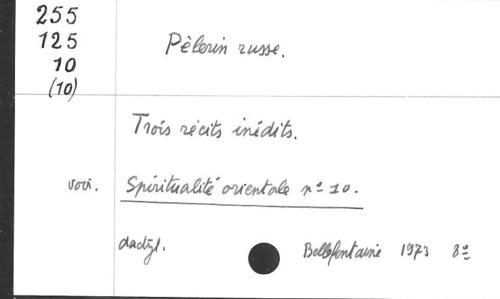 255
125
10
(10)
Pèlerin russe.
Trois récits inédits.
voir. Spiritualité orientale n° 10.
dactyl. Bellefontaine 1973 8°